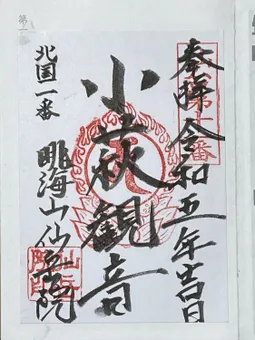 奉拝 令和五年吉日
小萩観音
北国一番
眺海山仙岳院